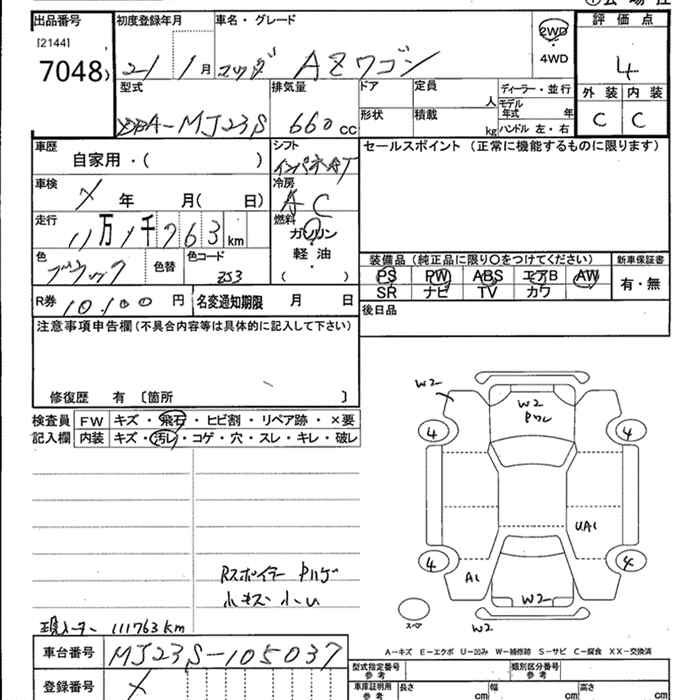 出品番号
[2144]
7048
初度登録年月
21 1月
車名・グレード
マツダ AZワゴン
2WD
4WD
評価点
4
外装 内装
C C
型式
DBA-MJ23S
排気量
660 cc
ドア
形状
定員
人
積載
kg
ディーラー・並行
モデル年式 年
ハンドル 左・右
車歴
自家用・( )
シフト
インパネAT
車検
メ 年 月( 日)
冷房
AC
走行
11万1千763km
燃料
ガソリン
軽油・
( )
色
ブラック
色替
色コード
ZJ3
R券 10,100 円
名変通知期限 月 日
セールスポイント (正常に機能するものに限ります)
装備品 (純正品に限り○をつけてください)
新車保証書
PS PW ABS エアB AW
SR ナビ TV カワ
有・無
後日品
注意事項申告欄(不具合内容等は具体的に記入して下さい)
修復歴 有 〔箇所 〕
検査員
記入欄
FW キズ・飛石・ヒビ割・リペア跡・×要
内装 キズ・汚レ・コゲ・穴・スレ・キレ・破レ
W2
W2
4 4
UA1
4 4
A1
W2
スペア
W2
Rスポイラー Pハゲ
小キズ 小凹
現メーター 111763km
A－キズ E－エクボ U－凹み W－補修跡 S－サビ C－腐食 XX－交換済
車台番号 MJ23S-105037
登録番号 メ
型式指定番号
参考
類別区分番号
参考
車庫証明用
参考
長さ cm
幅 cm
高さ cm